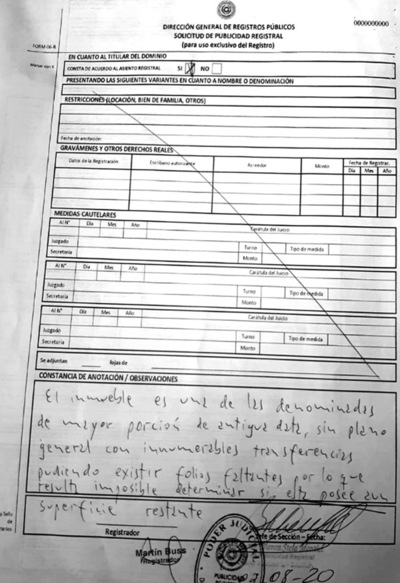 DIRECCIÓN GENERAL DE REGISTROS PÚBLICOS
SOLICITUD DE PUBLICIDAD REGISTRAL
(para uso exclusivo del Registro)
0000000000
FORM-06-R
EN CUANTO AL TITULAR DEL DOMINIO
CONSTA DE ACUERDO AL ASIENTO REGISTRAL SI NO
PRESENTANDO LAS SIGUIENTES VARIANTES EN CUANTO A NOMBRE O DENOMINACIÓN
RESTRICCIONES (LOCACIÓN, BIEN DE FAMILIA, OTROS)
Fecha de anotación:
GRAVÁMENES Y OTROS DERECHOS REALES
Datos de la Registración Escribano autorizante Acreedor Monto Fecha de Registrac.
Día Mes Año
MEDIDAS CAUTELARES
Al N° Día Mes Año Carátula del Juicio
Juzgado Turno Tipo de medida
Secretaría Monto
Al N° Día Mes Año Carátula del Juicio
Juzgado Turno Tipo de medida
Secretaría Monto
Al N° Día Mes Año Carátula del Juicio
Juzgado Turno Tipo de medida
Secretaría Monto
Se adjuntan fojas de
CONSTANCIA DE ANOTACIÓN / OBSERVACIONES
El inmueble es una de las denominadas
de mayor porción de antigua data, sin plano
general con innumerables transferencias
pudiendo existir folios faltantes por lo que
resulta imposible determinar si esta posee aun
superficie restante
Registrador
Jefe de Sección - Fecha:
Martín Buss
Registrador
PODER JUDICIAL
08-20